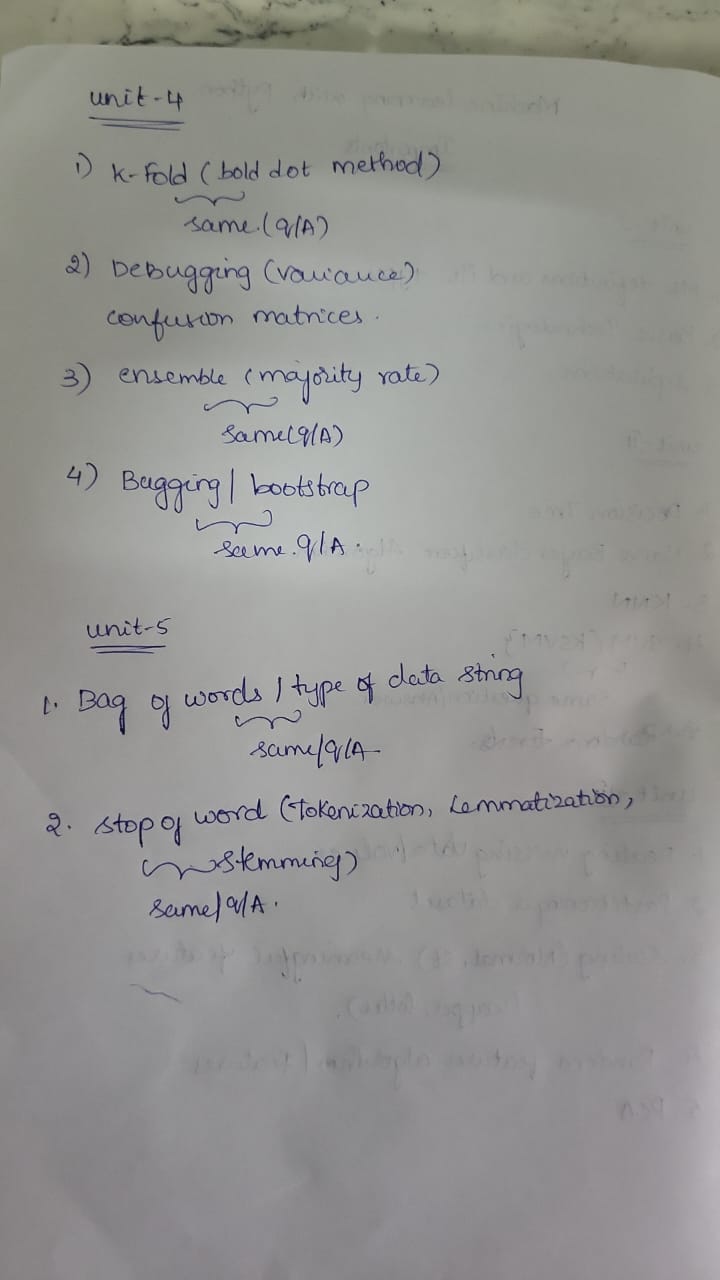 unit-4
1) K-Fold (bold dot method)
same.(q/A)
2) Debugging (variance)
confusion matrices.
3) ensemble (majority rate)
same(q/A)
4) Bagging/ bootstrap
same.q/A.
unit-5
1. Bag of words / type of data string
same/q/A
2. stop of word (Tokenization, Lemmatization,
stemming)
same/q/A.